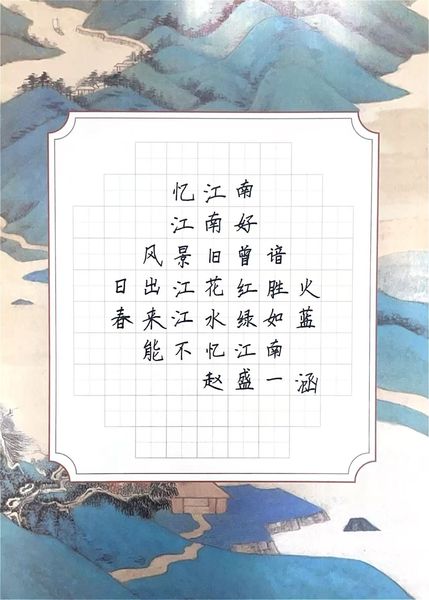 忆江南
江南好
风景旧曾谙
日出江花红胜火
春来江水绿如蓝
能不忆江南
赵盛一涵